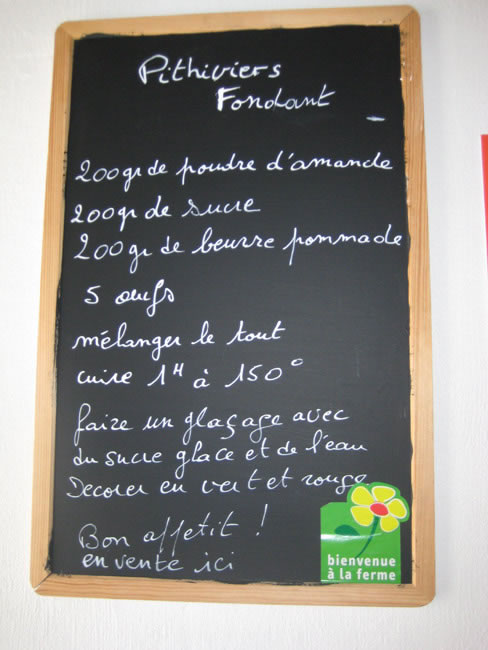 Pithiviers
Fondant
200gr de poudre d'amande
200gr de sucre
200gr de beurre pommade
5 œufs
mélanger le tout
cuire 1H à 150°
faire un glaçage avec
du sucre glace et de l'eau
Decorer en vert et rouge
Bon affetit !
en vente ici
bienvenue
à la ferme